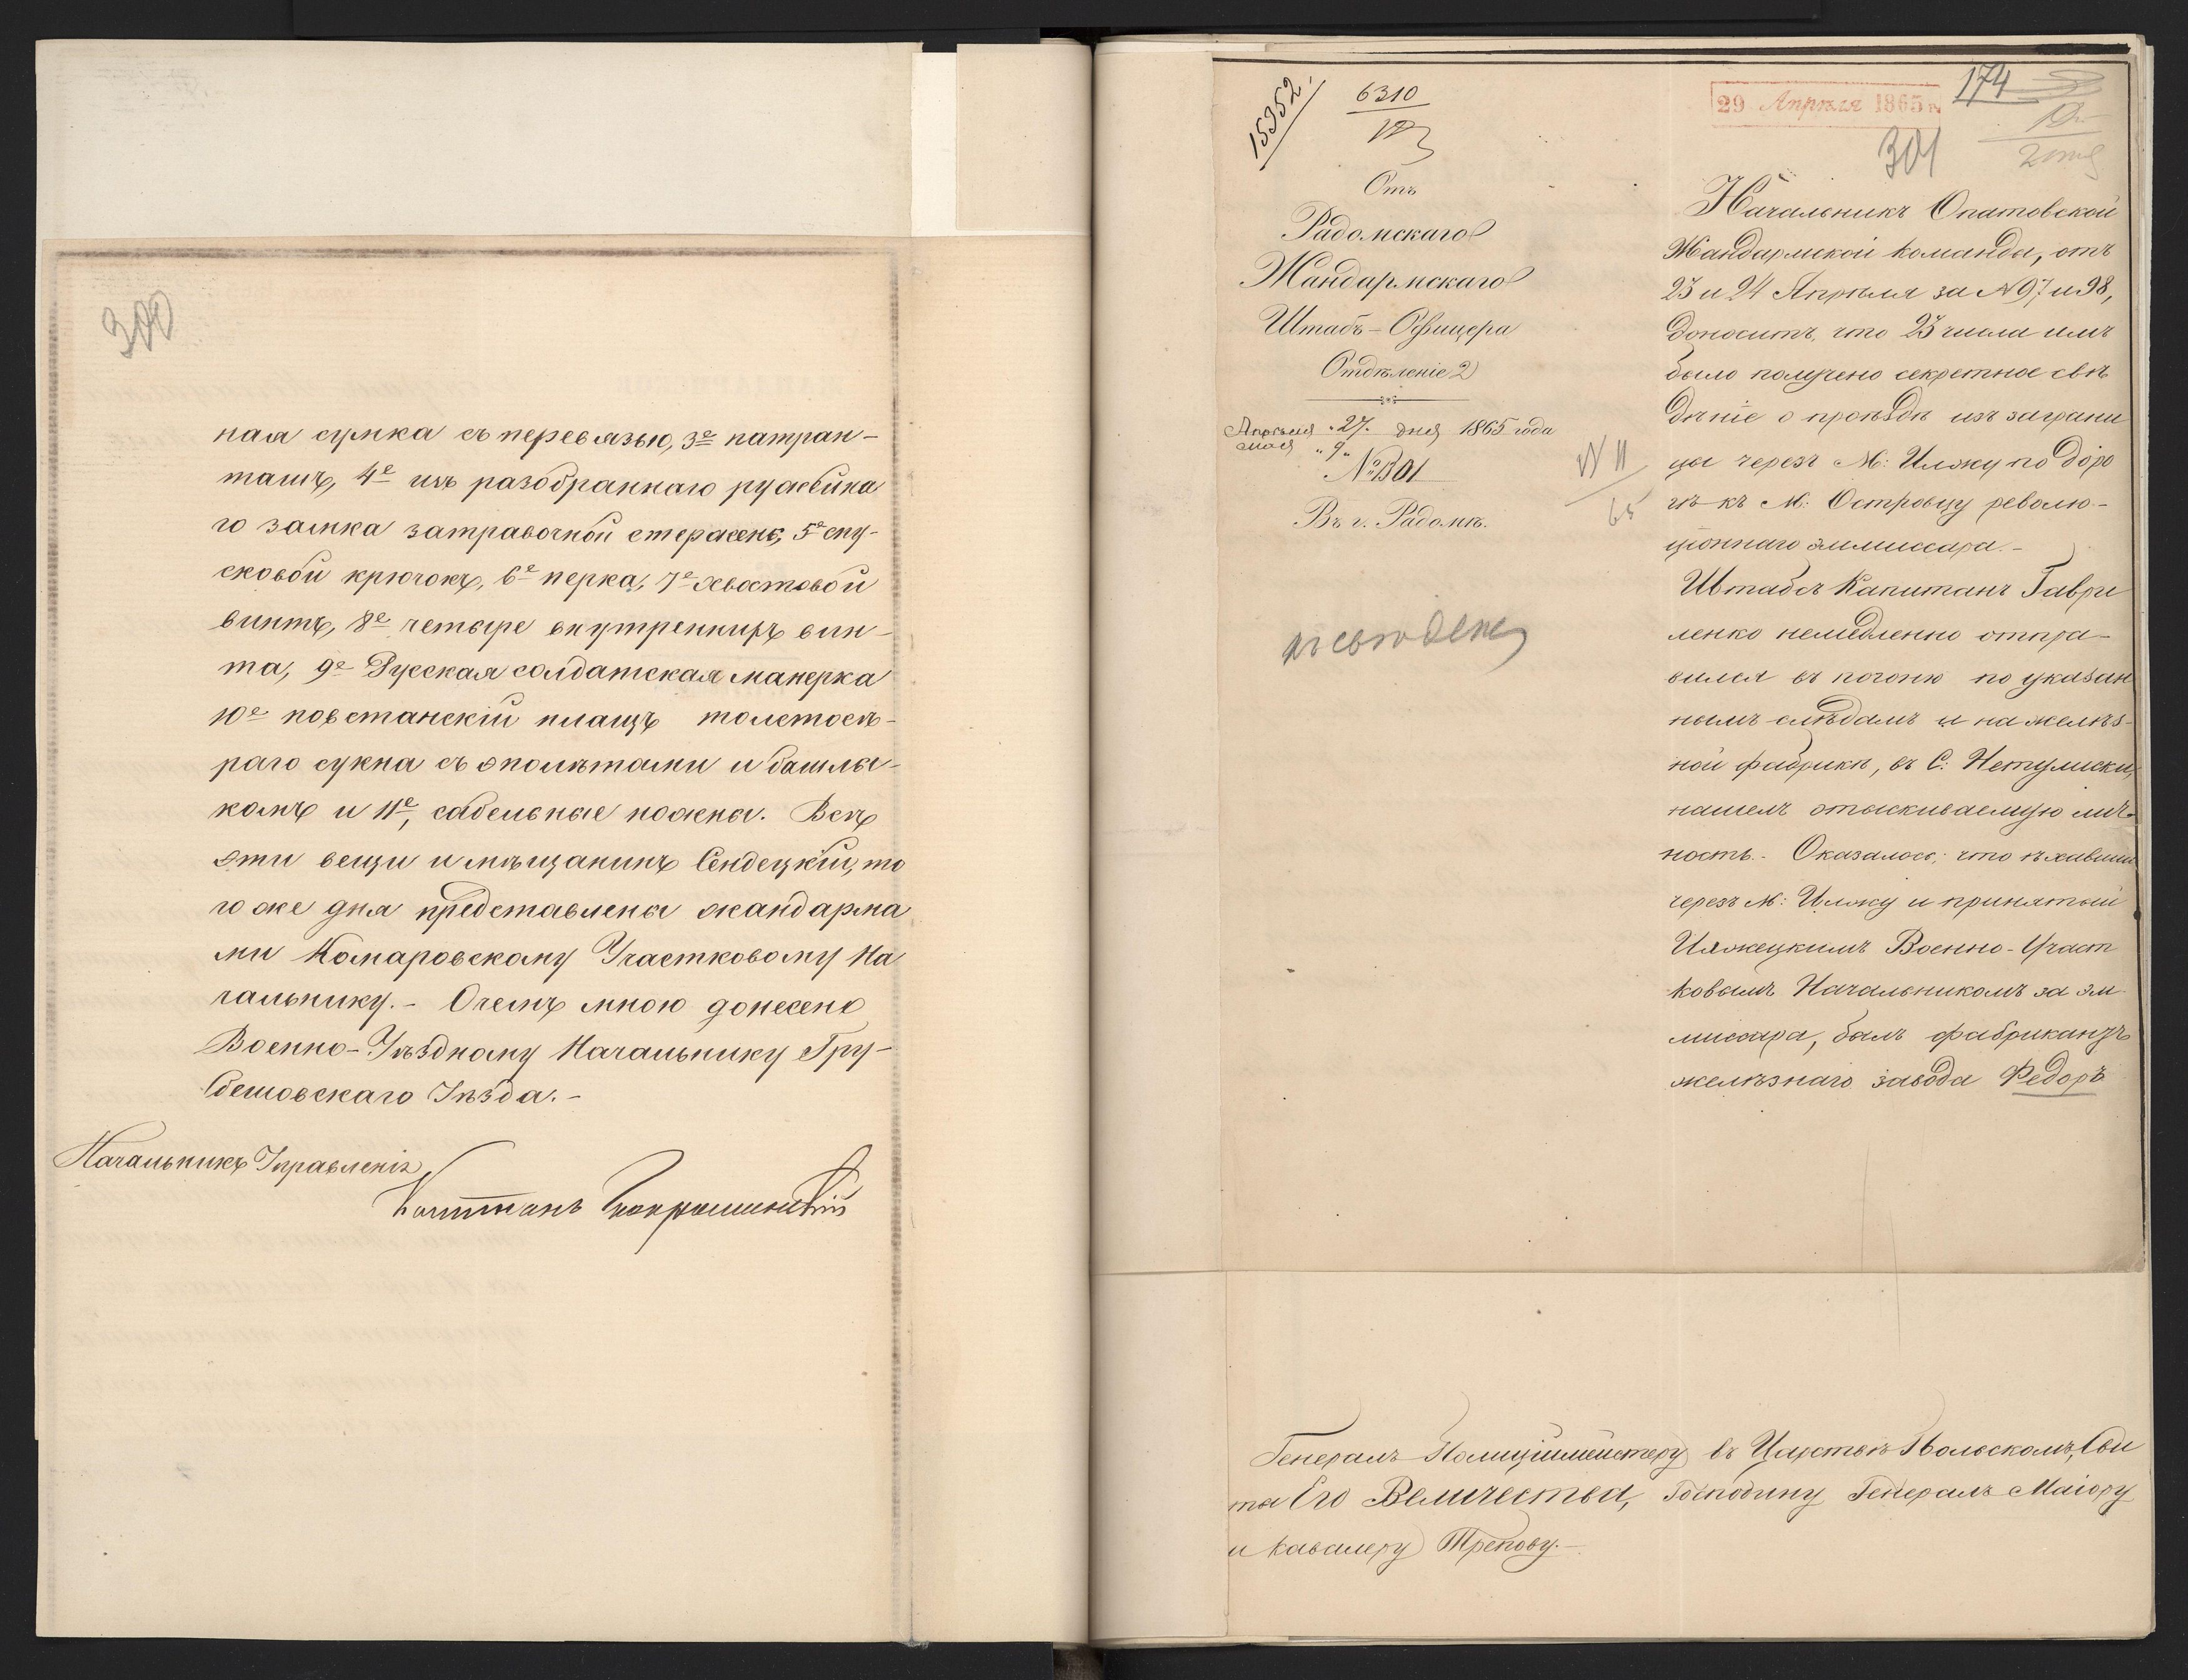 300
ная сумка съ перевязью, 3е патран-
ташъ, 4е изъ разобраннаго ружейна
го замка затравочной стержень, 5е спу-
сковой крючокъ, 6е перка, 7е хвостовой
винтъ, 8е четыре внутреннихъ вин-
та, 9е Русская солдатская манерка
10е повстанскій плащъ толстосѣ-
раго сукна съ эполѣтами и башлы-
комъ и 11е, сабельные ножны. Всѣ
эти вещи и мѣщанинъ Сендецкій, то
го же дня представлены жандарма
ми Комаровскому Участковому На
чальнику.- О чемъ мною донесено
Военно-Уѣздному Начальнику Гру-
бешовскаго Уѣзда.-
Начальникъ Управленія
Капитанъ
15352.
6310
29 Апрѣля 1865 г.
174
301
Отъ
Радомскаго
Жандармскаго
Штабъ-Офицера
Отдѣленіе 2
Апрѣля „27. дня 1865 года
Мая „9„
№1301
Въ г. Радомѣ.
№ 11
65
Начальникъ Опатовской
Жандармской команды, отъ
23 и 24 Апрѣля за №97 и 98,
доноситъ, что 23 числа имъ
было получено секретное свѣ
дѣніе о проѣздѣ изъ заграни
цы черезъ М: Илжу по доро
гѣ къ М: Островцу револю-
ціоннаго эммиссара.-
Штабсъ Капитанъ Гаври
ленко немедленно отпра-
вился въ погоню по указан
нымъ слѣдамъ и на желѣз-
ной фабрикѣ, въ С: Нетулиски,
нашелъ отыскиваемую лич-
ность.- Оказалось, что ѣхавшій
черезъ М: Илжу и принятый
Илжецкимъ Военно-Участ
ковымъ Начальникомъ за эм
миссара, былъ фабрикантъ
желѣзнаго завода Федоръ
Генералъ-Полиціймейстеру въ Царствѣ Польскомъ, Сви
ты Его Величества, Господину Генералъ-Маіору
и Кавалеру Трепову.-